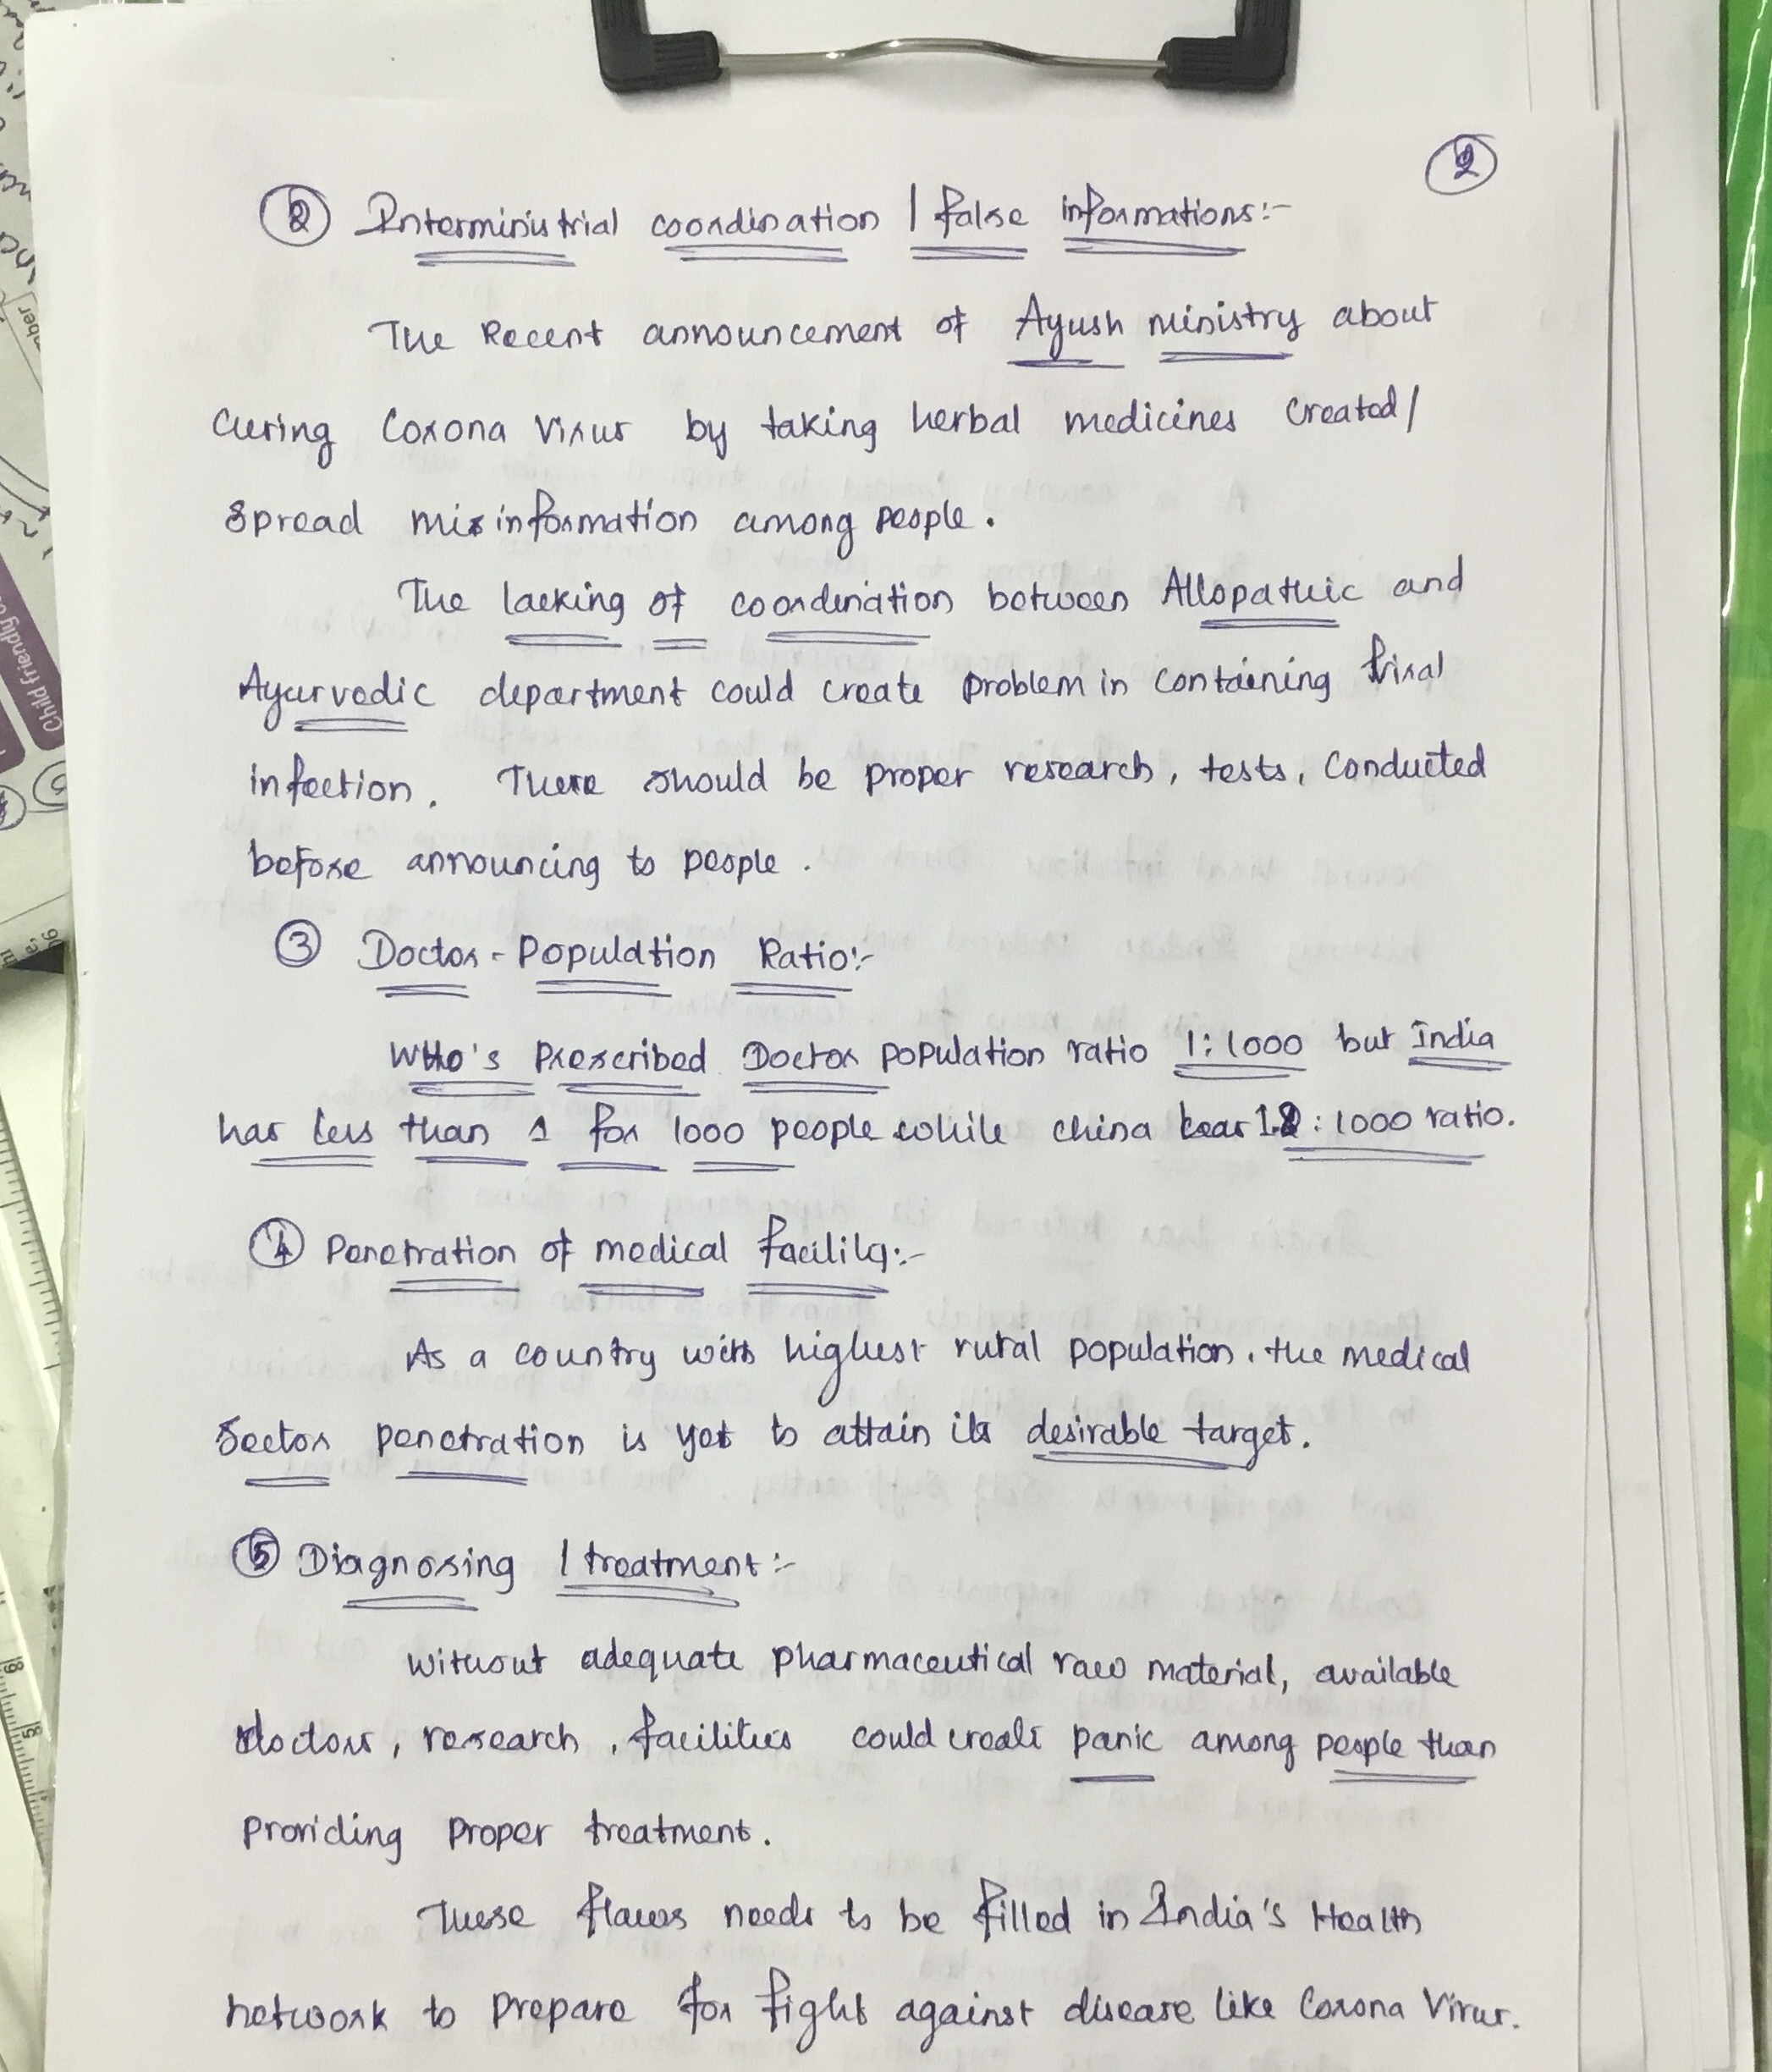 2
② Interministrial coordination / false informations:-
The Recent announcement of Ayush ministry about
curing Corona Virus by taking herbal medicines created/
spread misinformation among people.
The lacking of coordination between Allopathic and
Ayurvedic department could create problem in containing viral
infection. There should be proper research, tests, conducted
before announcing to people.
③ Doctor - Population Ratio:-
WHO's Prescribed Doctor population ratio 1:1000 but India
has less than 1 for 1000 people while china bear 1.8 : 1000 ratio.
④ Penetration of medical facility:-
As a country with highest rural population, the medical
sector penetration is yet to attain its desirable target.
⑤ Diagnosing / treatment:-
Without adequate pharmaceutical raw material, available
doctors, research, facilities could create panic among people than
providing proper treatment.
These flaws needs to be filled in India's Health
network to prepare for fight against disease like Corona Virus.
Child friendly